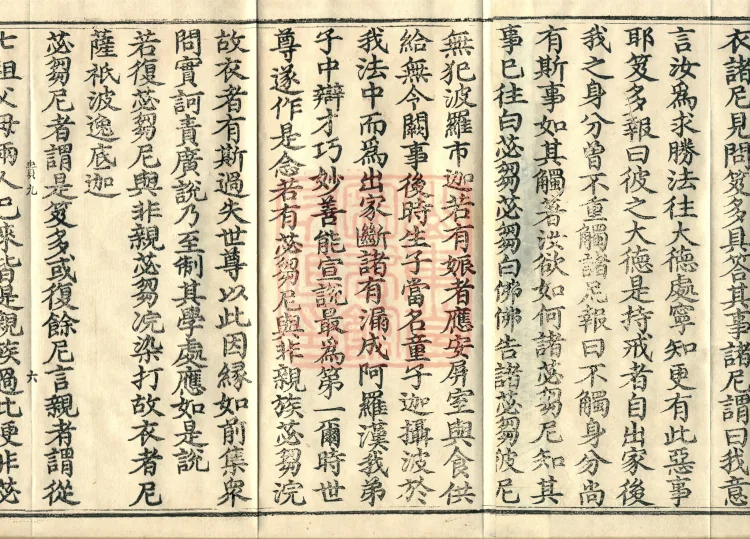 衣諸尼見問笈多具答其事諸尼謂曰我意
言汝為求勝法往大德處寧知更有此惡事
耶笈多報曰彼之大德是持戒者自出家後
我之身分曾不重觸諸尼報曰不觸身分尚
有斯事如其觸著決欲如何諸苾芻尼知其
事已往白苾芻苾芻白佛佛告諸苾芻彼尼
無犯波羅市迦若有娠者應安屏室與食供
給無令闕事後時生子當名童子迦攝波於
我法中而為出家斷諸有漏成阿羅漢我弟
子中辯才巧妙善能宣說最為第一爾時世
尊遂作是念若有苾芻尼與非親族苾芻浣
故衣者有斯過失世尊以此因緣如前集衆
問實訶責廣說乃至制其學處應如是說
若復苾芻尼與非親苾芻浣染打故衣者尼
薩祇波逸底迦
苾芻尼者謂是笈多或復餘尼言親者謂從
七祖父母兩人已來皆是親族過此便非苾
六